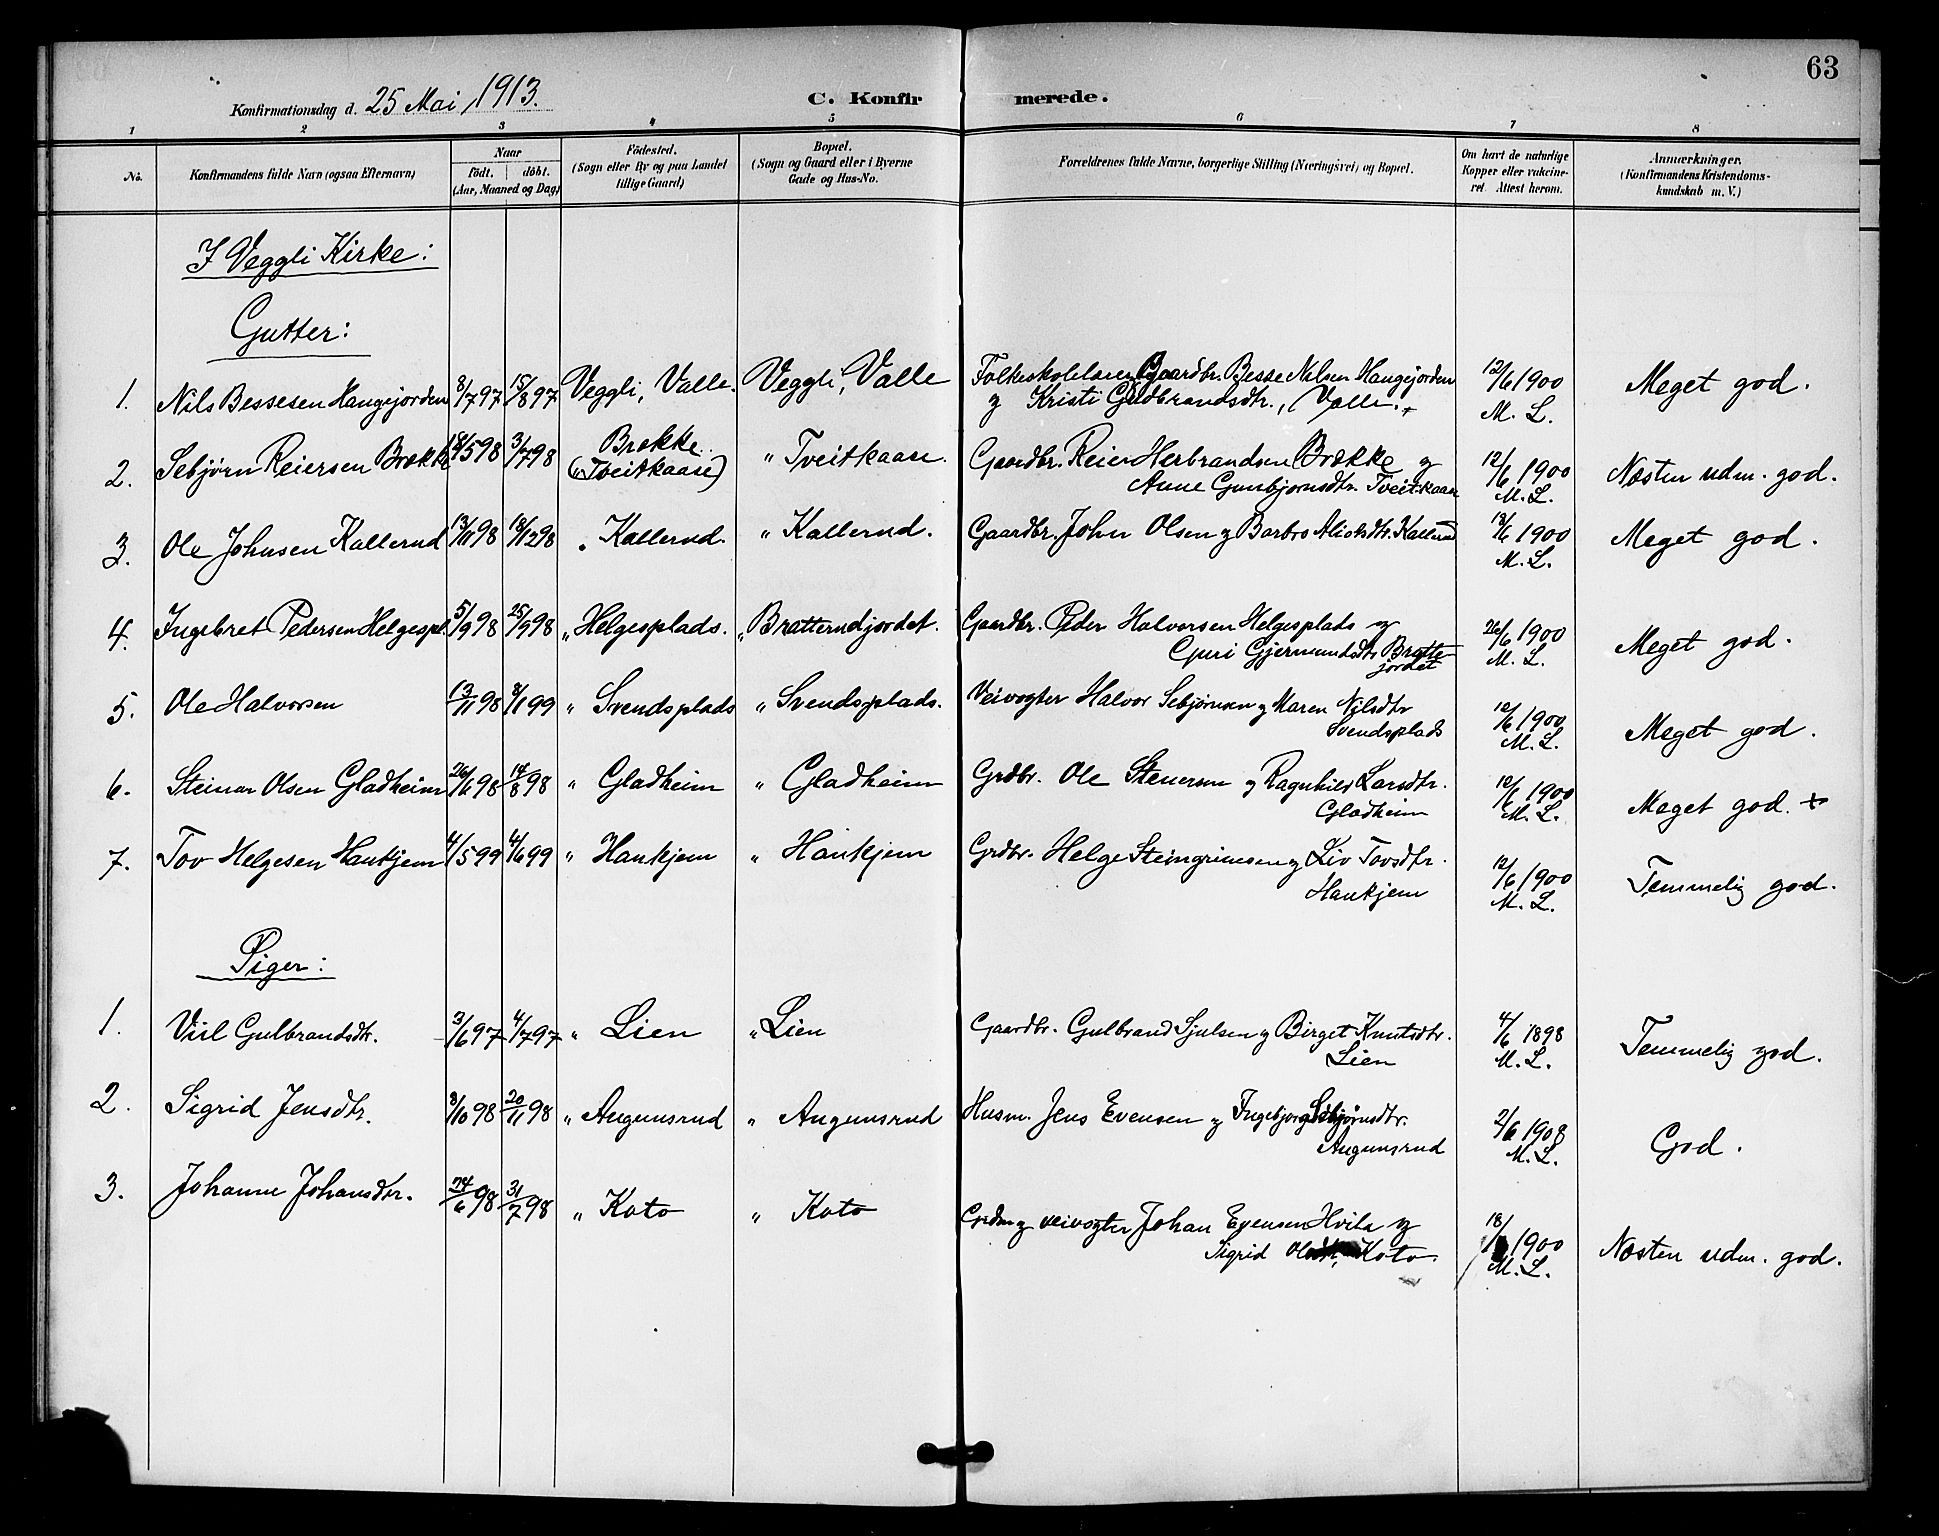 63
Konfirmationsdag d. 25 Mai, 1913.
C. Konfirmerede.
1 2 3 4 5 6 7 8
No.
Konfirmandens fulde Navn (ogsaa Efternavn)
Naar
födt. döbt.
(Aar, Maaned og Dag)
Födested.
(Sogn eller By og paa Landet
tillige Gaard)
Bopæl.
(Sogn og Gaard eller i Byerne
Gade og Hus-No.
Forældrenes fulde Navne, borgerlige Stilling (Næringsvei) og Bopæl.
Om havt de naturlige
Kopper eller vaccine-
ret. Attest herom.
Anmærkninger.
(Konfirmandens Kristendoms-
kundskab m. V.)
I Veggli Kirke:
Gutter:
1. Nils Bessesen Haugejorden 8/7 97 15/8 97 Veggli, Valle. Veggli, Valle Folkeskolelærer, Gaardbr. Besse Nilsen Haugejorden 12/6 1900 Meget god.
og Kristi Gudbrandsdtr., Valle. M. L.
2. Sebjørn Reiersen Brække /5 98 3/7 98 Brække " Tveitkaase. Gaardbr. Reier Herbrandsen Brække og 12/6 1900 Næsten udm. god.
("Tveitkaase) Anne Gunbjørnsdtr. Tveitkaase M. L.
3. Ole Johnsen Kallerud 13/11 98 18/12 98 " Kallerud. " Kallerud. Gaardbr. John Olsen og Barbro Kallerud 12/6 1900 Meget god.
M. L.
4. Ingebret Pedersen Helgespl. 5/9 98 25/9 98 " Helgesplads. " Bratterudjordet. Gaardbr. Peder Halvorsen Helgesplads og 26/6 1900 Meget god.
Guri Gjermundsdtr Bratte- M. L.
jordet
5. Ole Halvorsen 13/11 98 8/1 99 " Svendsplads " Svendsplads. Veivogter Halvor Sebjørnsen og Maren Nilsdtr 12/6 1900 Meget god.
Svendsplads M. L.
6. Steinar Olsen Gladheim 26/6 98 14/8 98 " Gladheim " Gladheim Grdbr. Ole Stenersen og Ragnhild Larsdtr. 12/6 1900 Meget god. +
Gladheim M. L.
7. Tov Helgesen Haukjem 4/5 99 4/6 99 " Haukjem " Haukjem Grdbr. Helge Steingrimsen og Liv Tovsdtr. 12/6 1900 Temmelig god.
Haukjem M. L.
Piger:
1. Viil Gulbrandsdtr. 3/6 97 4/7 97 " Lien " Lien Gaardbr. Gulbrand Sjulsen og Birget Knutsdtr. 4/6 1898 Temmelig god.
Lien M. L.
2. Sigrid Jensdtr. 8/10 98 20/11 98 " Augunsrud " Augunsrud Husm. Jens Evensen og Ingebjørg Sebjørnsdtr. 2/6 1908 God.
Augunsrud M. L.
3. Johanne Johansdtr. 24/6 98 31/7 98 " Koto " Koto veivogter Johan Evensen Hvila og 18/ 1900 Næsten udm. god.
Sigrid Koto. M. L.